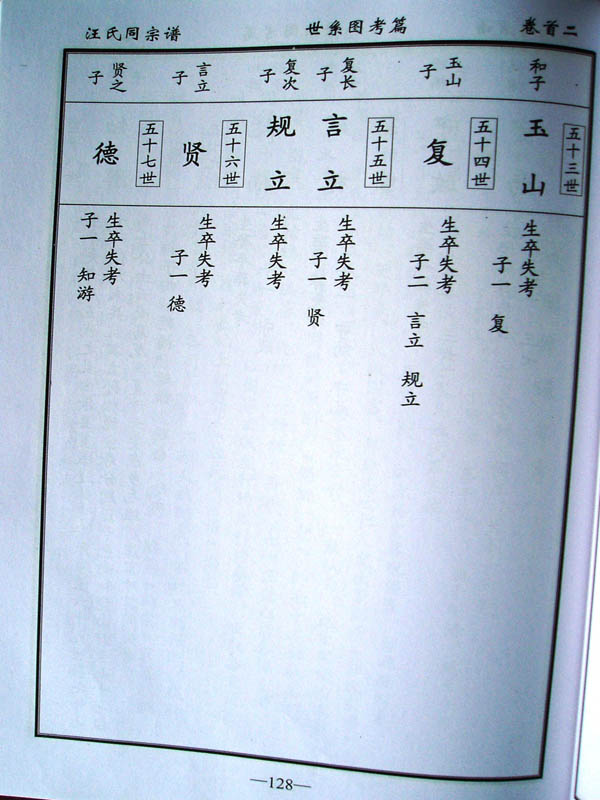 汪氏同宗谱 世系图考篇 卷首二
五十三世
和子
玉山
生卒失考
子一 复
五十四世
玉山子
复
生卒失考
子二 言立 规立
五十五世
复长子
言立
生卒失考
子一 贤
复次子
规立
生卒失考
五十六世
言立子
贤
生卒失考
子一 德
五十七世
贤之子
德
生卒失考
子一 知游
—128—